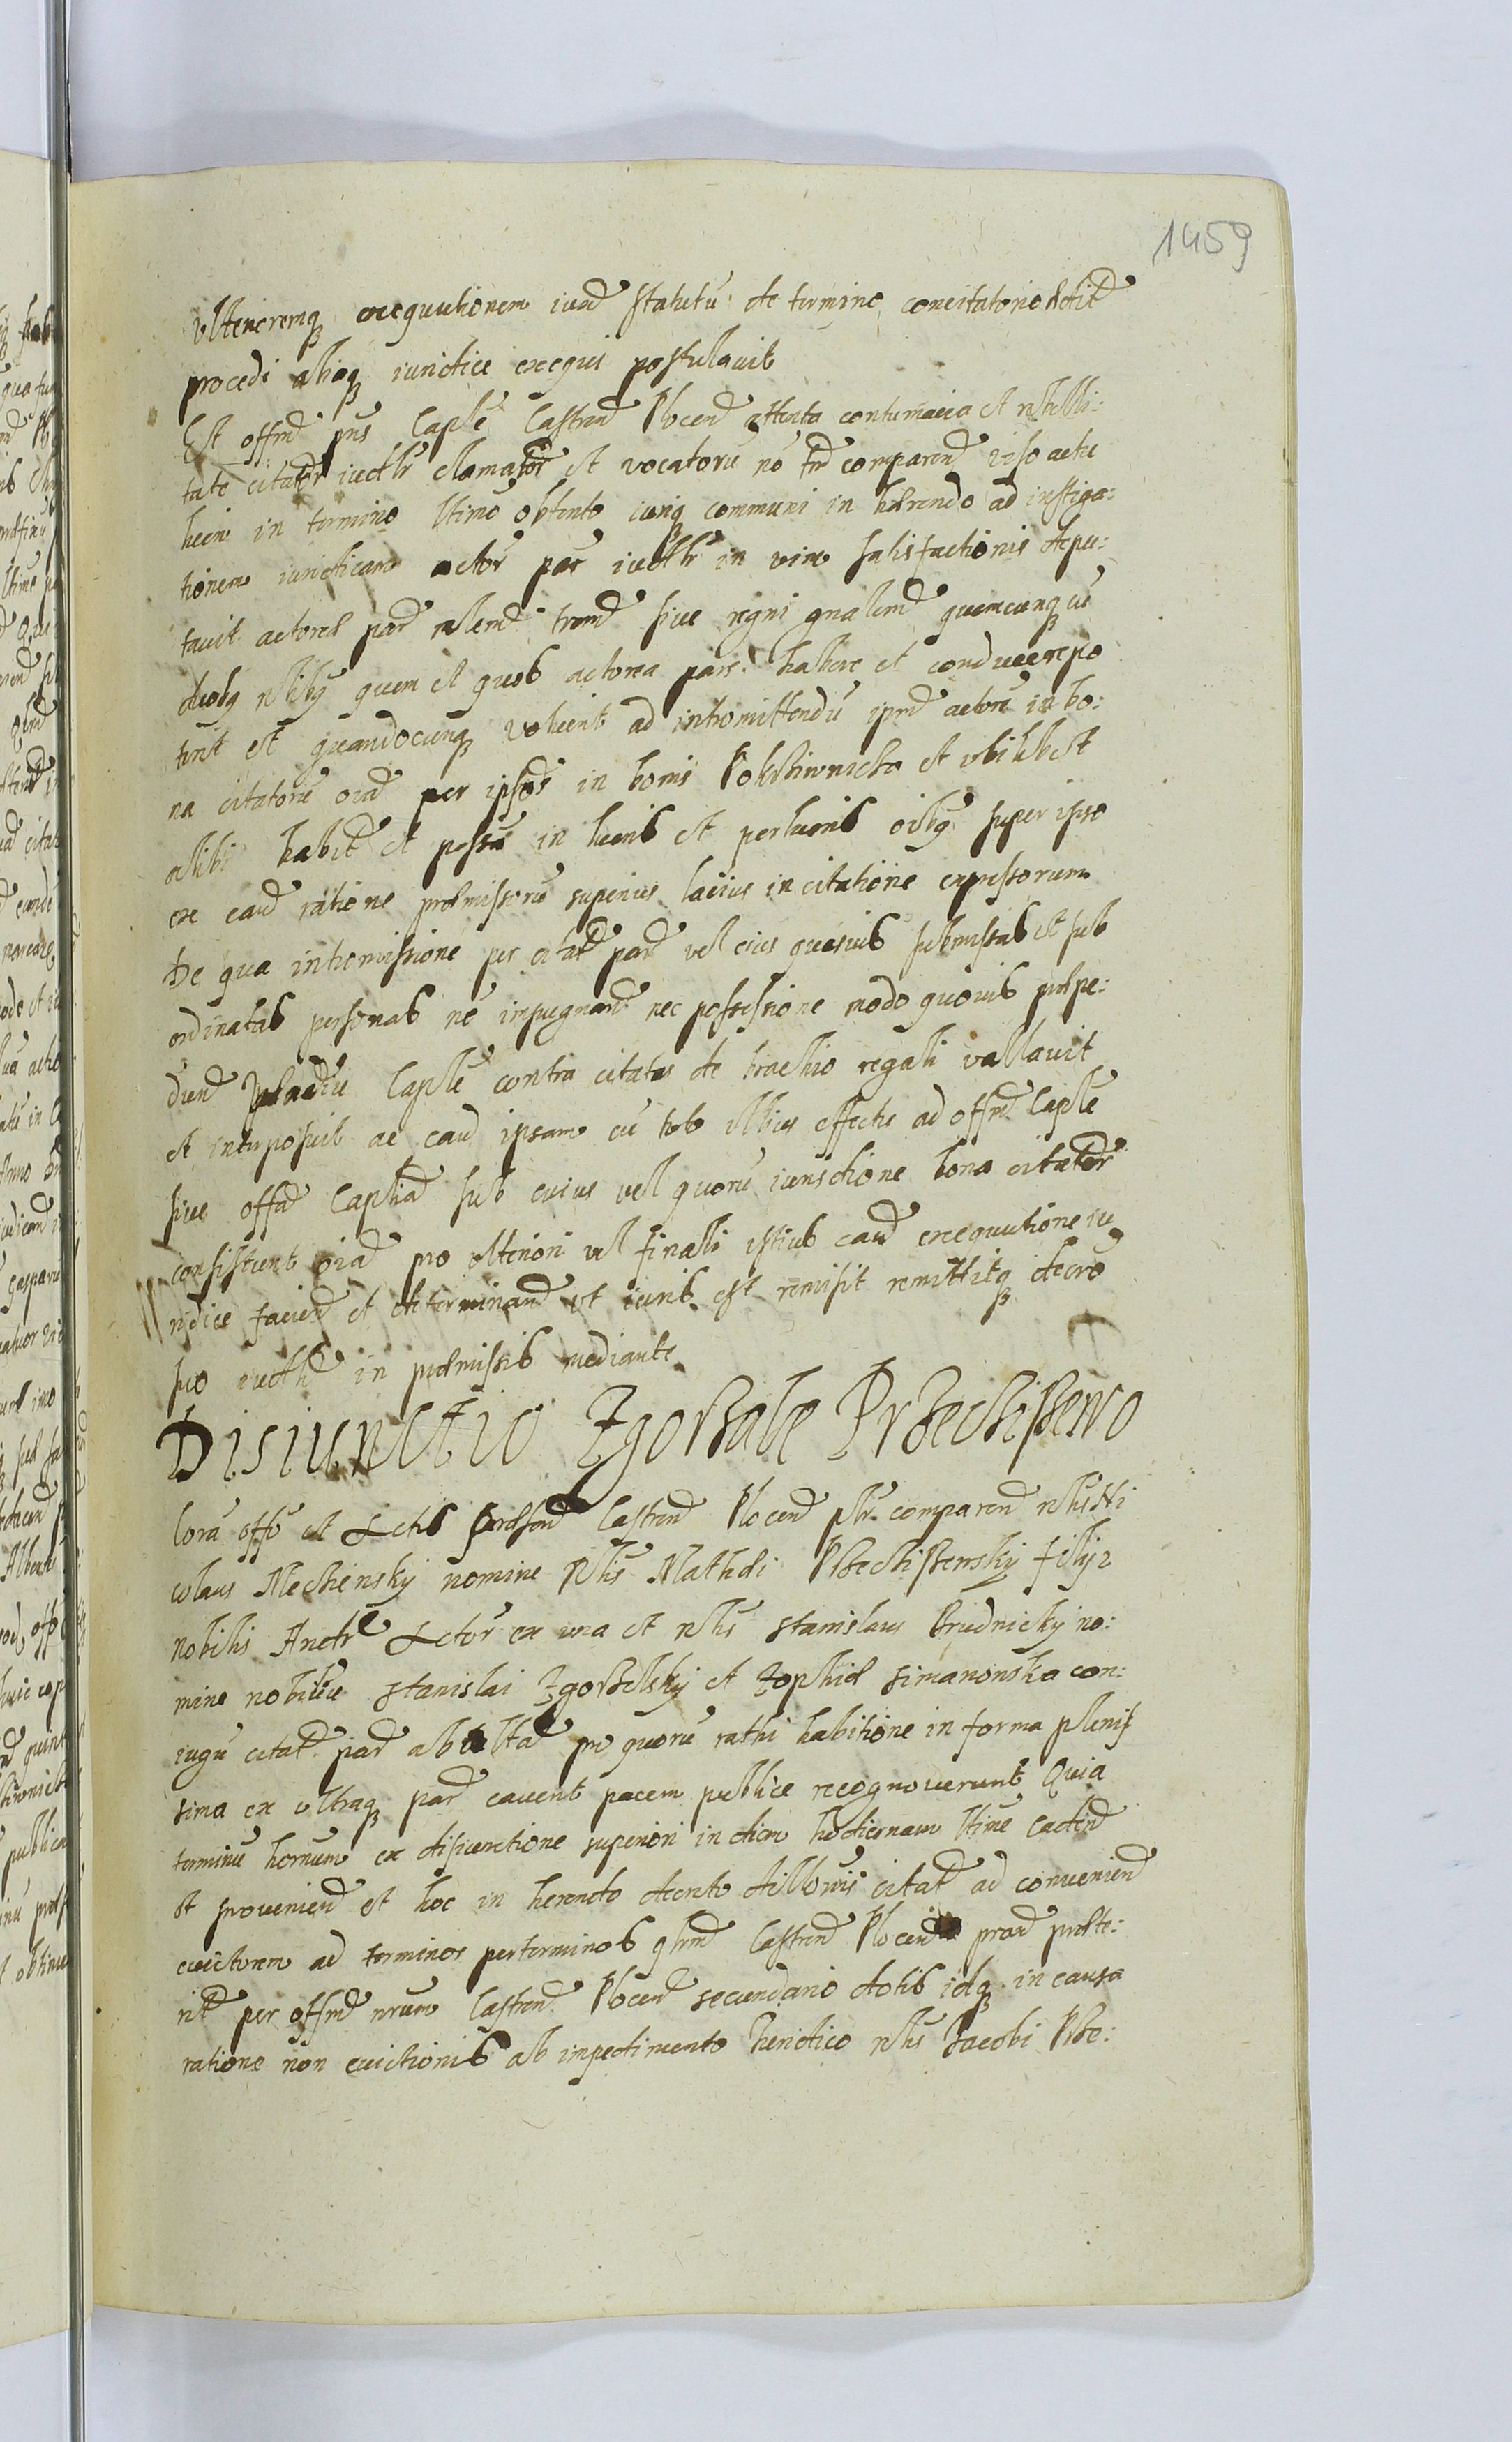 1459
Ulterioremq exequutionem iuxd statutu de termino concitatorio
procedi aliaq iuridice exequi postulavit
Est offmd pns Caple Castrend Plocend attenta contumacia et rebelli:
tate citator iudlr clamator et vocatoru no tmd comparend viso actu
lucri in termino ltimo obtento iuriq communi in hærendo ad instiga:
tionem iuridicam actor par iudlr in vim satisfactionis depu:
tavit actoreæ pard mlemd trremd sive regni gnalemd quemcunq cu
duobq nlibq quem et quos actorea pars habere et conducere po
terit et quandocunq voluerit ad intromittendu ipmd actore in bo:
na citatoru oiad per ipsos in bonis et ubilibet
alibi habit et possa in lucris et perlucris oibq super ipso
ex caud ratione præmissoru superius lacius in citatione expressorum
De qua intromissione per citatd pard vel eius quasuis submissas et sub
ordinatas personas no impugnand nec possessione modo quovis præpe:
diend vadiu Caple contra citatos de brachio regali vallavit
et interposuit ac caud ipsam cu toto illius effectu ad offmd Caple
sive offad Capliad sub cuius vel quoru iurisdictione bona citator
consistunt oiad pro ulteriori vel finali istius caud exequutione iu
ridice faciend et determinand ut iuris est remisit remittitq decro
suo iudlid in præmissis mediante
Disiunctio Zgorzale Przedczissewo
Cora offo et Actis Castrend Plocend plr comparend nlis Ni
colaus Mechensky nomine nlis Mathæi filij
nobilis Andr Actor ex una et nlis Stanislaus Brudnicky no:
mine nobiliu Stanislai Zgorzelsky et Zophiæ Simanonska con:
iugu citatd pard ab altad pro quoru rathi habitione in forma plenis
sima ex utraq pard cavent pacem publice recognoverunt Quia
terminu hornum ex disiunctione superiori in diem hodiernam ltime cadend
et proveniend et hoc in herendo decreto citatd ad conveniend
evictorem ad terminos per terminos qlrmd Castrend Plocend prad præte:
ritd per offmd nrum Castrend Plocend secundario dotis idq in causa
ratione non evictionis ab impedimento Iuridico nlis Jacobi